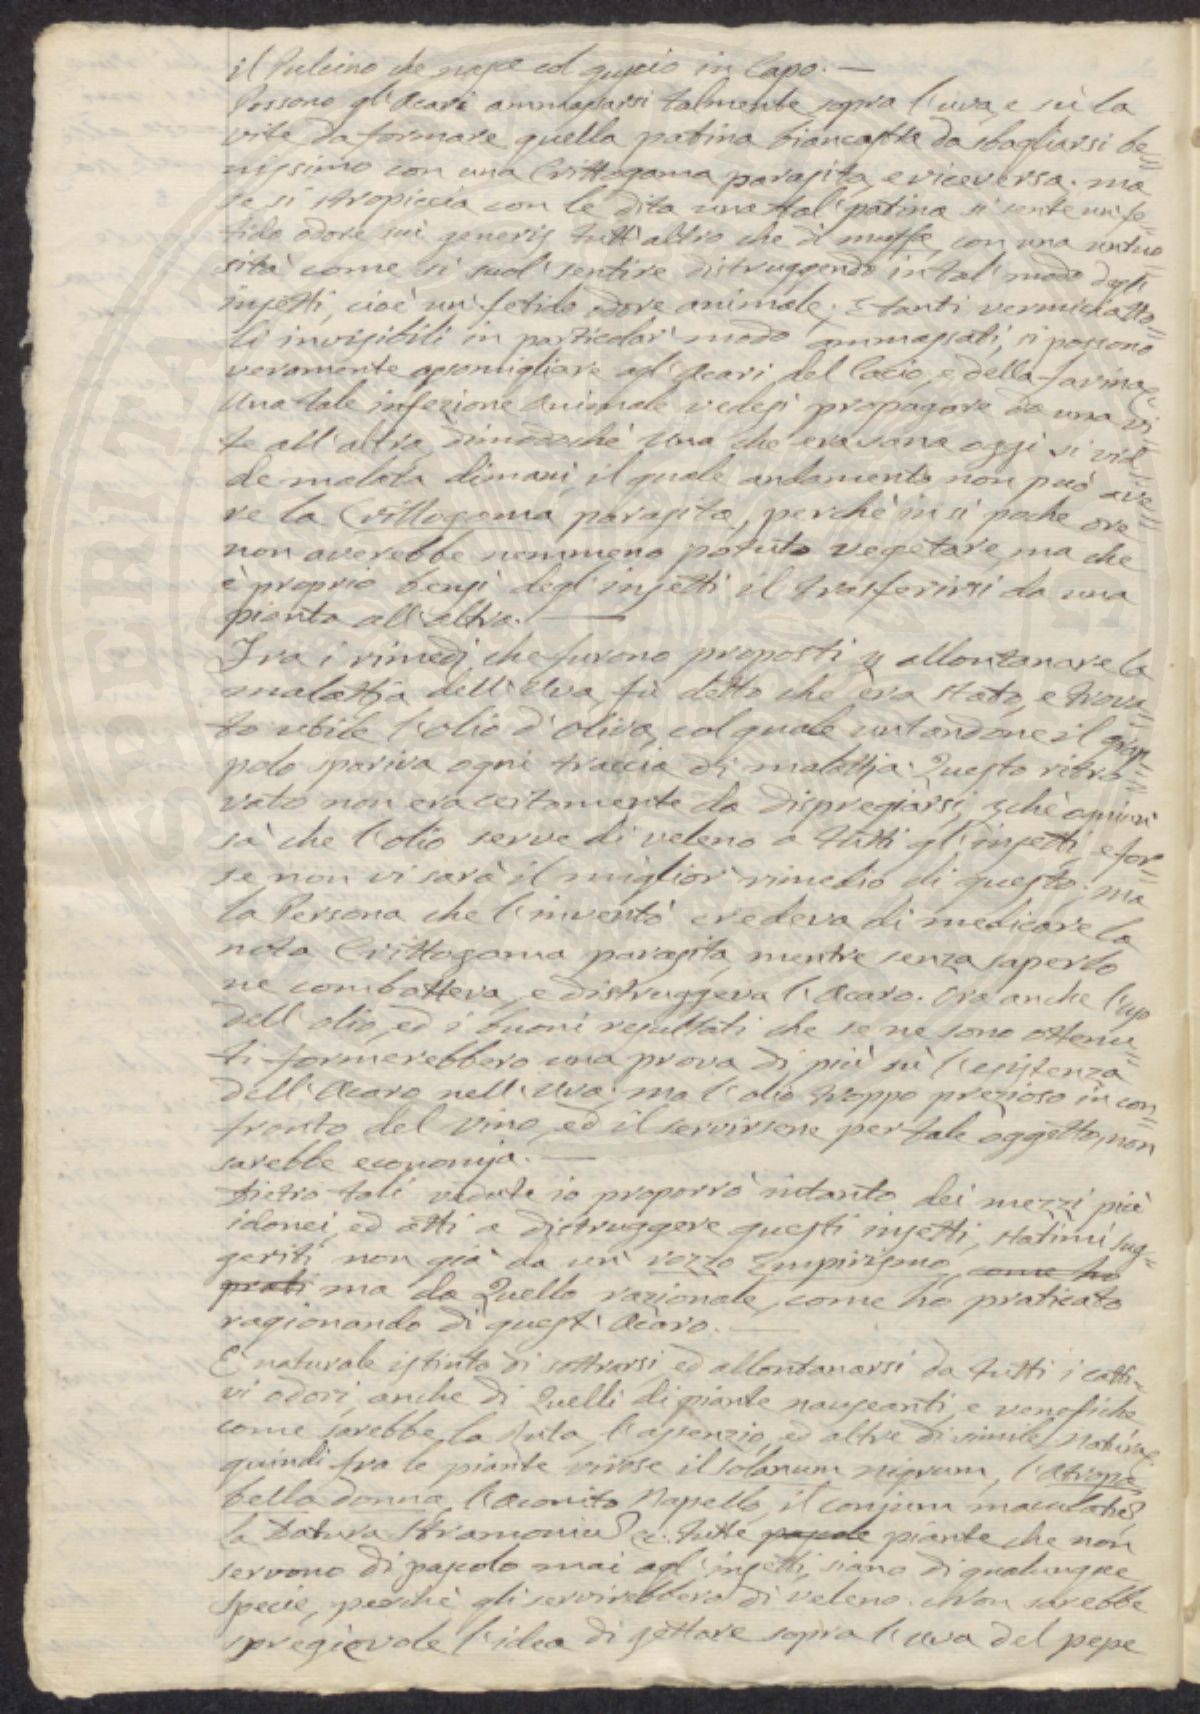 il Pulcino che nasce col guscio in Capo. —
Possono gl'Acari ammassarsi talmente sopra l'uva, e sù la
vite da formare quella patina biancastra da sbagliarsi be=
nissimo con una Crittogama parasita, e viceversa. ma
se si stropiccia con le dita una tal' patina si sente un fe=
tido odore sui generis tutt'altro che di muffa, con una untuo=
sità come si suol' sentire distruggendo in tal' modo degli
insetti, cioè un' fetido odore animale; E tanti vermiciatto=
li invisibili in particolar' modo ammassati, si possono
veramente assomigliare agl'Acari del Cacio, e della farina.
Una tale infezione animale vedesi propagare da una vi=
te all'altra, dimodochè una che era sana oggi si vid=
de malata dimani, il quale andamento non può ave=
re la Crittogama parasita, perchè in sì poche ore
non averebbe nemmeno potuto vegetare, ma che
è proprio bensì degl'insetti il trasferirsi da una
pianta all'altra. —
Fra i rimedj che furono proposti p allontanare la
malattia dell'Uva, fù detto che era stato, e trova=
to utile l'olio d'oliva, col quale untandone il grap=
polo spariva ogni traccia di malattia. Questo ritro=
vato non era certamente da dispregiarsi, pchè ogniun'
sà che l'olio serve di veleno a tutti gl'insetti, e for=
se non vi sarà il miglior' rimedio di questo; ma
la Persona che l'inventò credeva di medicare la
nota Crittogama parasita, mentre senza saperlo
ne combatteva, e distruggeva l'Acaro. Ora anche l'uso
dell'olio, ed i buoni resultati che se ne sono ottenu=
ti formerebbero una prova di più sù l'esistenza
dell'Acaro nell'Uva. ma l'olio troppo prezioso in con=
fronto del vino, ed il servirsene per tale oggetto, non
sarebbe economia. —
Dietro tali vedute io proporrò intanto dei mezzi più
idonei, ed atti a distruggere questi insetti, statimi sug=
geriti non già da un' rozzo Empirismo, come ho
prati ma da Quello razionale, come ho praticato
ragionando di quest'Acaro. —
E naturale istinto di sottrarsi, ed allontanarsi da tutti i catti=
vi odori, anche di Quelli di piante nauseanti, e venefiche
come sarebbe la Ruta, l'assenzio, ed altre di simile Natura,
quindi fra le piante virose il solanum nigrum, l'Atropa
bella donna, l'Aconito Napello, il conium maculatū,
la Datura Stramoniū ec. tutte pascolo piante che non
servono di pascolo mai agl'insetti, siano di qualunque
Specie, perchè gli servirebbero di veleno. Non sarebbe
spregievole l'idea di gettare sopra l'uva del pepe